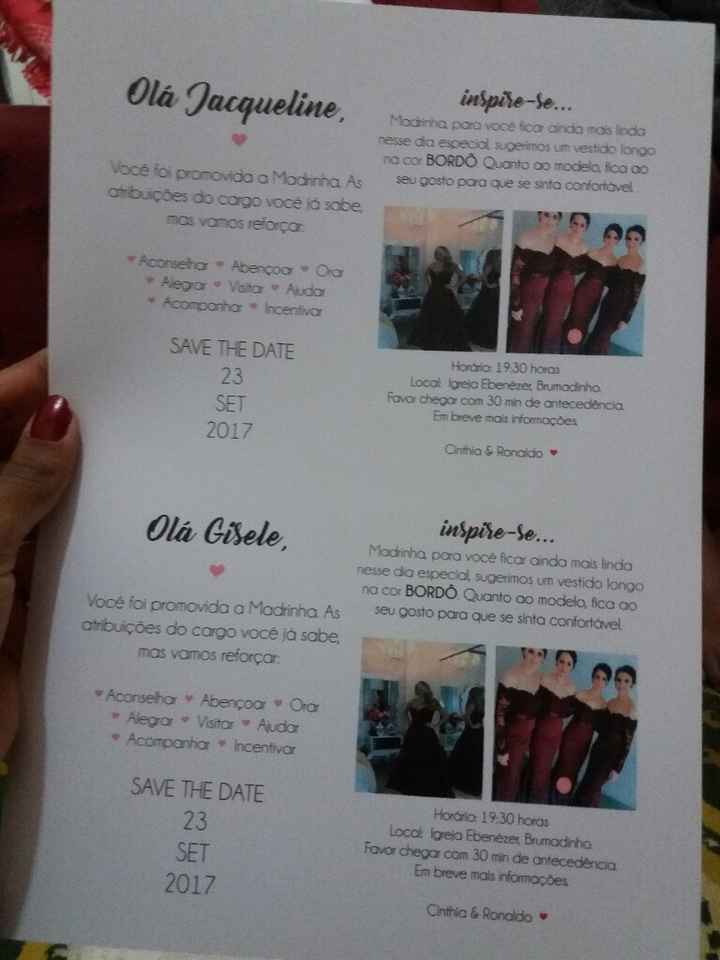 Olá Jacqueline,
Você foi promovida a Madrinha. As
atribuições do cargo você já sabe,
mas vamos reforçar:
Aconselhar Abençoar Orar
Alegrar Visitar Ajudar
Acompanhar Incentivar
SAVE THE DATE
23
SET
2017
inspire-se...
Madrinha, para você ficar ainda mais linda
nesse dia especial, sugerimos um vestido longo
na cor BORDÔ. Quanto ao modelo, fica ao
seu gosto para que se sinta confortável.
Horário: 19:30 horas
Local: Igreja Ebenézer, Brumadinho.
Favor chegar com 30 min de antecedência.
Em breve mais informações.
Cinthia & Ronaldo
Olá Gisele,
Você foi promovida a Madrinha. As
atribuições do cargo você já sabe,
mas vamos reforçar:
Aconselhar Abençoar Orar
Alegrar Visitar Ajudar
Acompanhar Incentivar
SAVE THE DATE
23
SET
2017
inspire-se...
Madrinha, para você ficar ainda mais linda
nesse dia especial, sugerimos um vestido longo
na cor BORDÔ. Quanto ao modelo, fica ao
seu gosto para que se sinta confortável.
Horário: 19:30 horas
Local: Igreja Ebenézer, Brumadinho.
Favor chegar com 30 min de antecedência.
Em breve mais informações.
Cinthia & Ronaldo